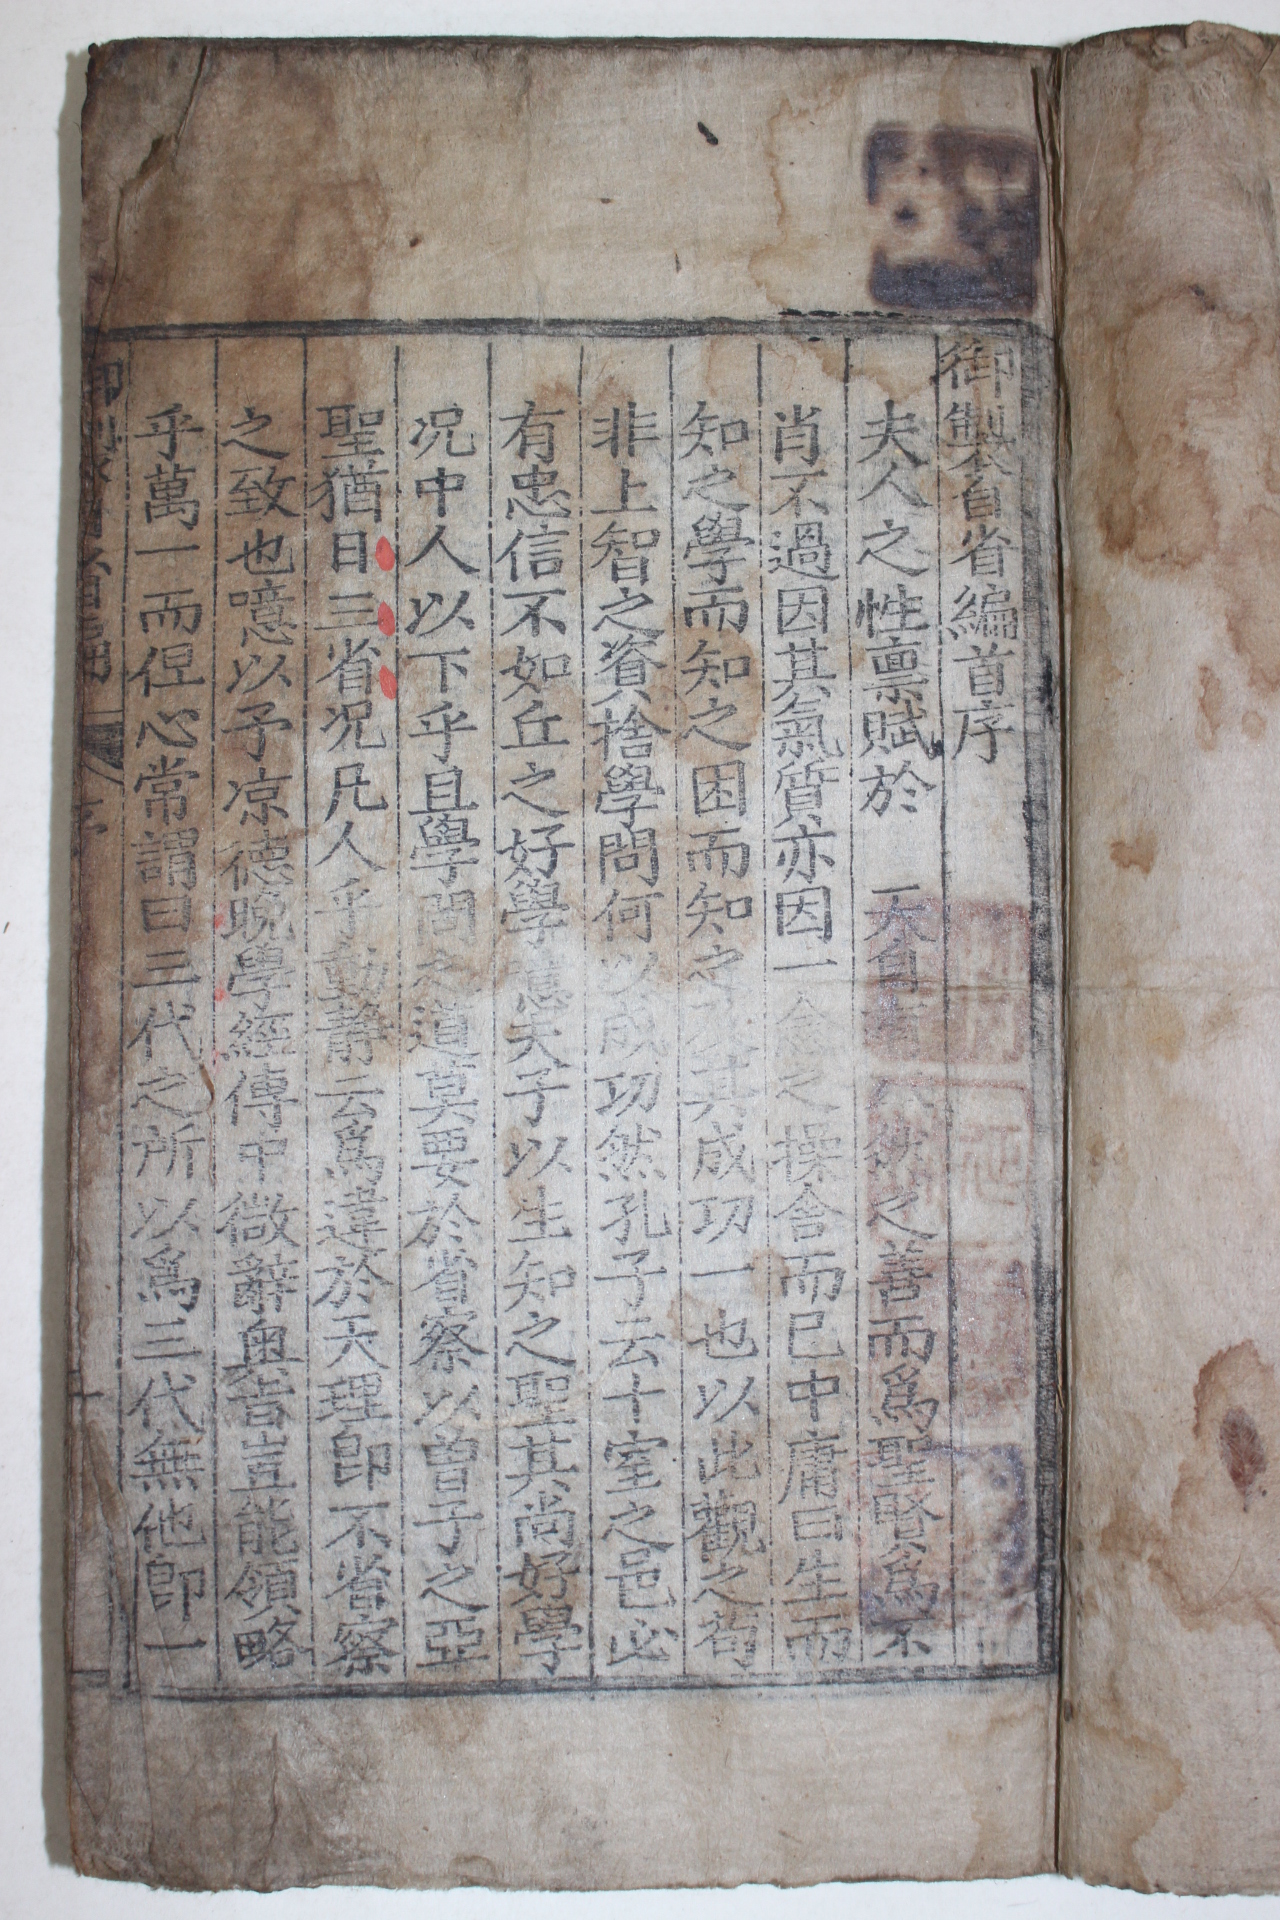 御製自省編首序
夫人之性禀賦於 天自有本然之善而爲聖賢爲不
肖不過因其氣質亦因一念之操舍而已中庸曰生而
知之學而知之困而知之及其成功一也以此觀之苟
非上智之資捨學問何以成功然孔子云十室之邑必
有忠信不如丘之好學意夫子以生知之聖其尚好學
况中人以下乎且學問之道莫要於省察以曾子之亞
聖猶曰三省况凡人乎動靜云爲違於天理卽不省察
之致也噫以予凉德晚學經傳中微辭奥旨豈能領略
乎萬一而但心常謂曰三代之所以爲三代無他卽一